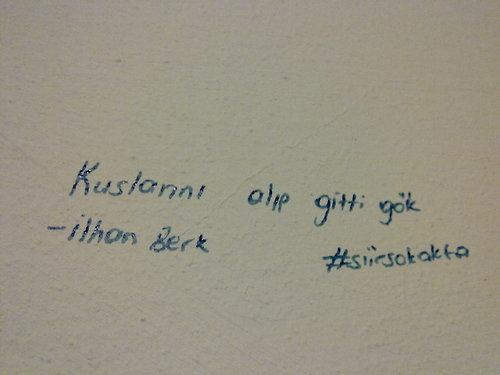 Kuslarını alıp gitti gök
-ilhan Berk
#siirsokakta